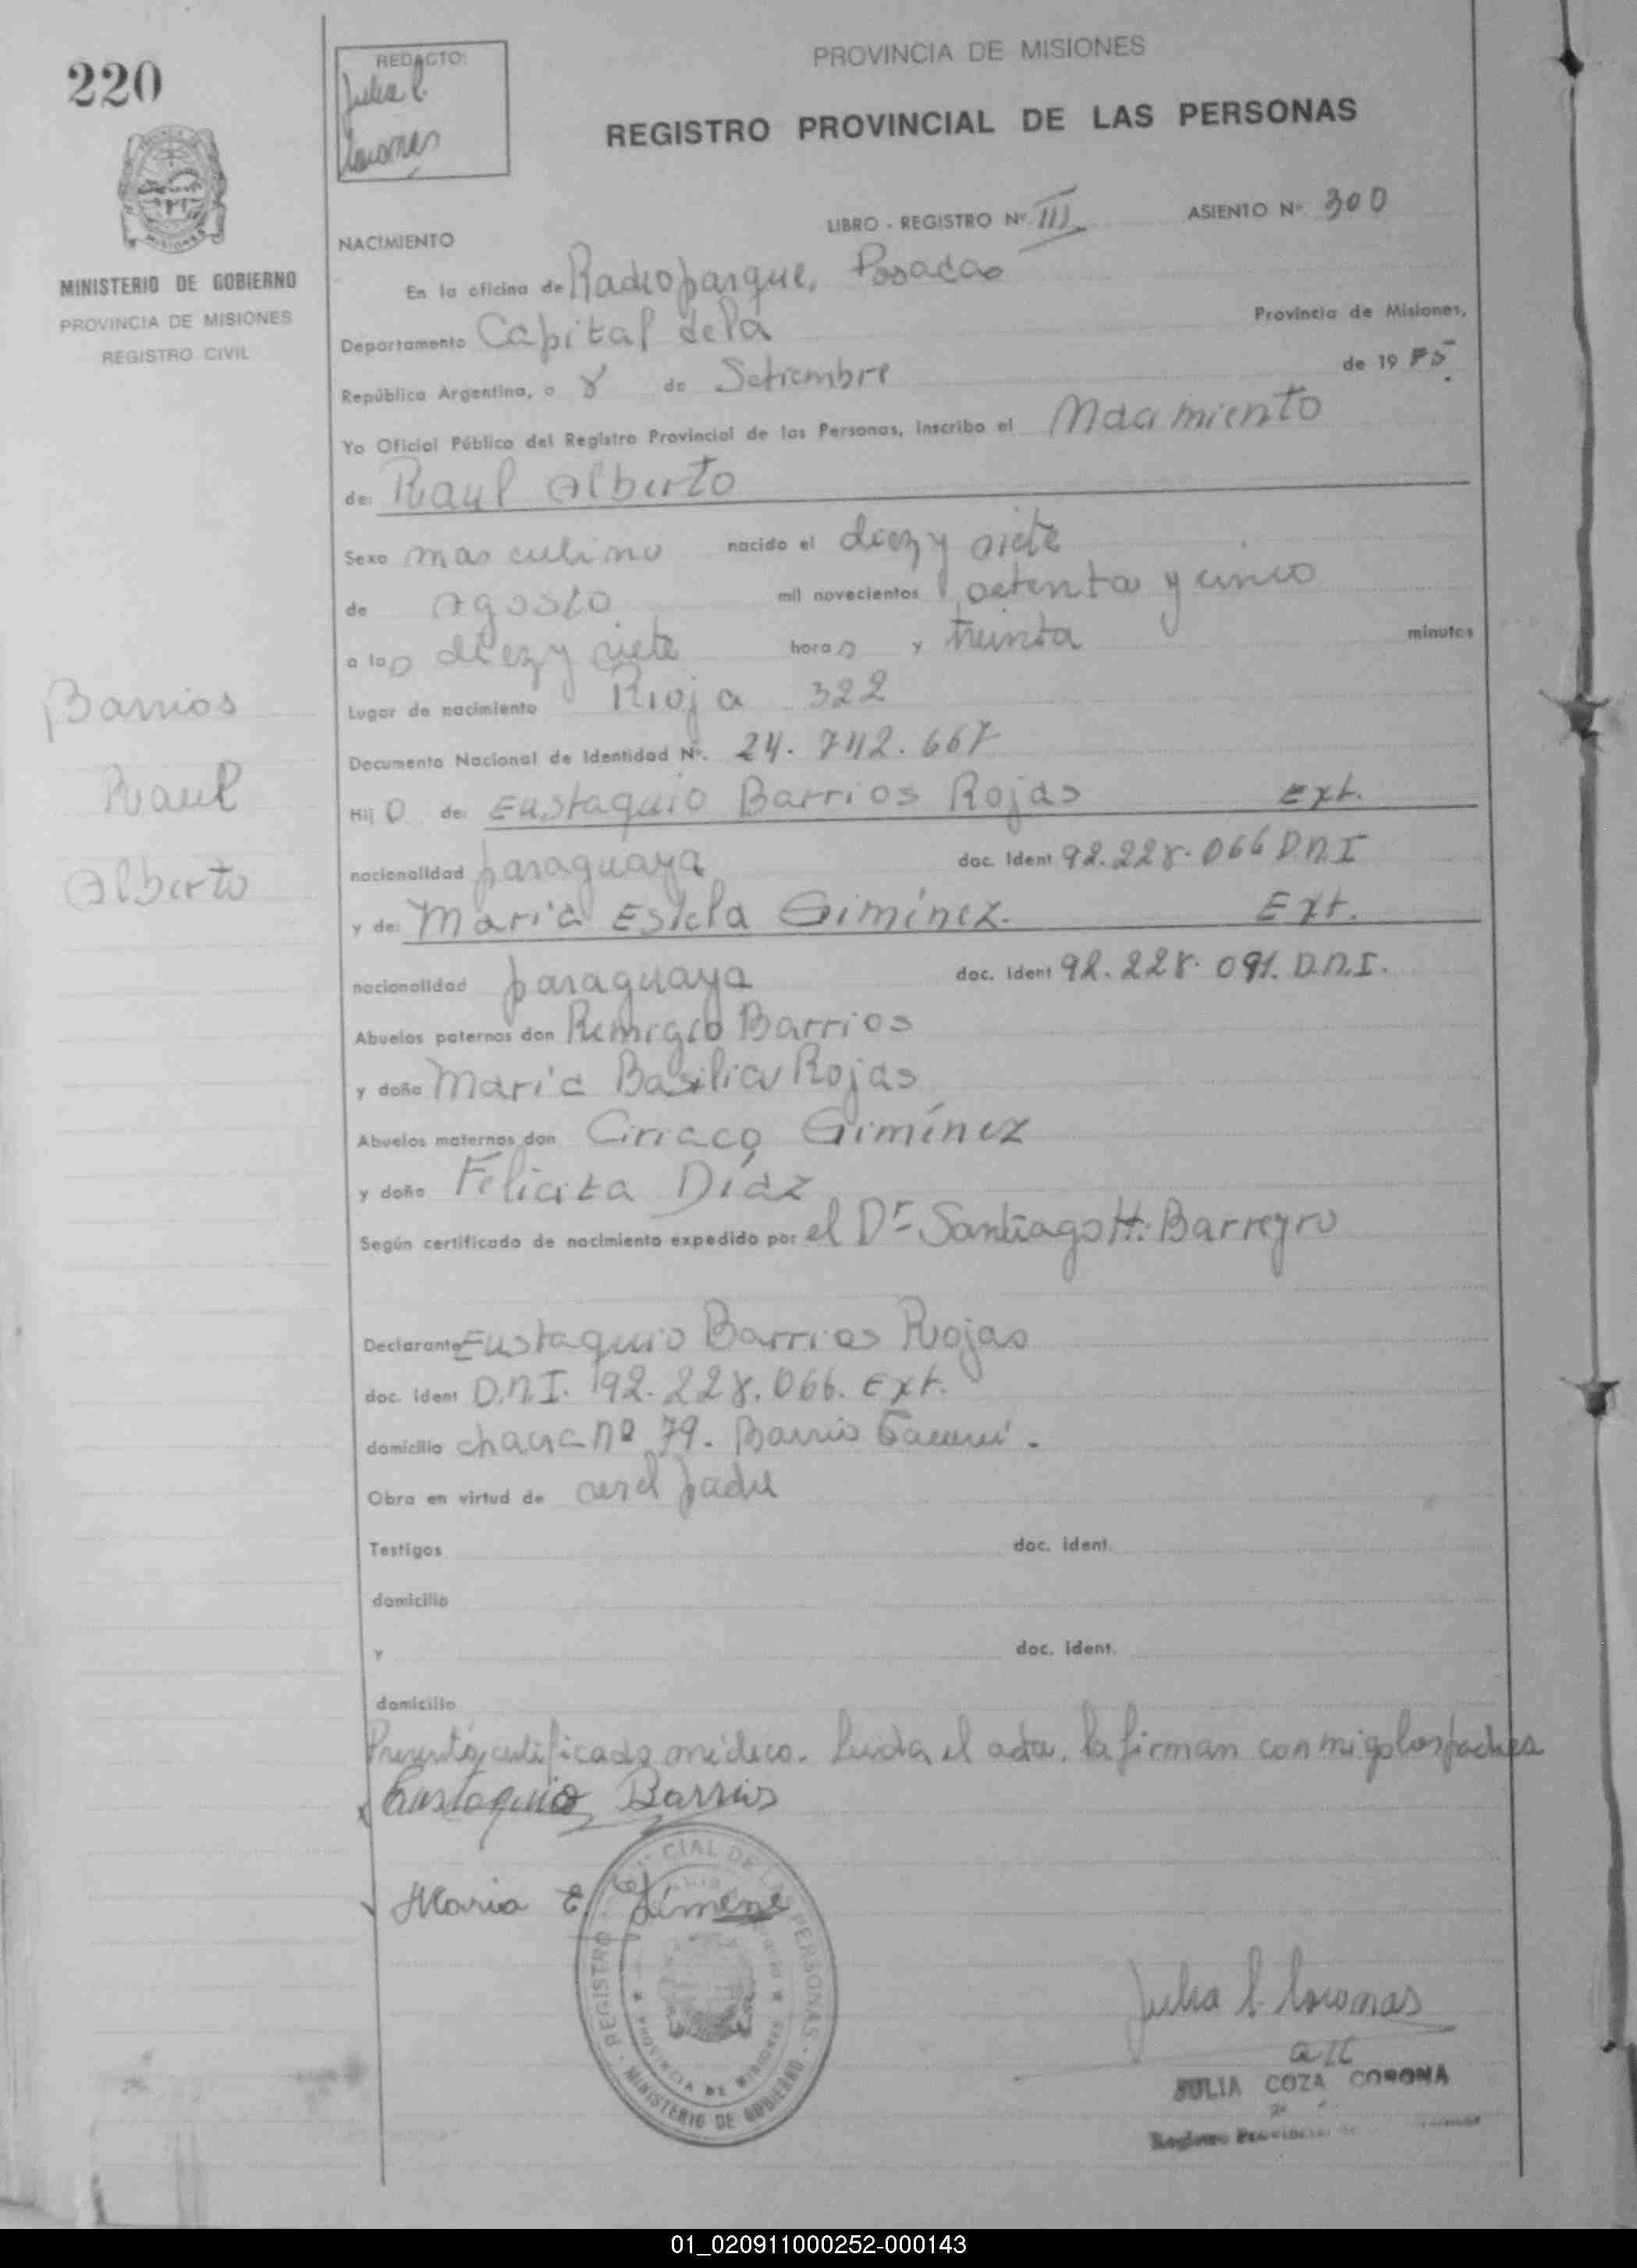 220
REDACTO:
Julia C.
Coronas
PROVINCIA DE MISIONES
REGISTRO PROVINCIAL DE LAS PERSONAS
MISIONES
MINISTERIO DE GOBIERNO
PROVINCIA DE MISIONES
REGISTRO CIVIL
LIBRO - REGISTRO Nº III
ASIENTO Nº 300
NACIMIENTO
En la oficina de Radioparque, Posadas
Departamento Capital de la Provincia de Misiones,
República Argentina, a 8 de Setiembre de 1975
Yo Oficial Público del Registro Provincial de las Personas, inscribo el Nacimiento
de: Raul Alberto
Sexo masculino nacido el diez y siete
de agosto mil novecientos setenta y cinco
a las diez y siete horas y treinta minutos
Lugar de nacimiento Rioja 322
Documento Nacional de Identidad Nº. 24.742.667
Barrios
Raul
Alberto
Hijo de: Eustaquio Barrios Rojas Ext.
nacionalidad paraguaya doc. Ident 92.228.066 D.N.I
y de: Maria Estela Giménez. Ext.
nacionalidad paraguaya doc. ident 92.228.091. D.N.I.
Abuelos paternos don Remigio Barrios
y doña Maria Basilia Rojas
Abuelos maternos don Ciriaco Gimínez
y doña Felicita Díaz
Según certificado de nacimiento expedido por el Dr Santiago H. Barreyro
Declarante Eustaquio Barrios Rojas
doc. ident D.N.I. 92.228.066. Ext.
domicilio chacra nº 79. Barrio
Obra en virtud de ser el padre
Testigos doc. ident.
domicilio
y doc. ident.
domicilio
Presentó certificado médico. Leida el acta, la firman conmigo los padres
Eustaquio Barrios
Maria E. Jimene
REGISTRO PROVINCIAL DE LAS PERSONAS - MINISTERIO DE GOBIERNO
PROVINCIA DE MISIONES
Julia C. Coronas
JULIA COZA CORONA
Registro Provincial de
01_020911000252-000143